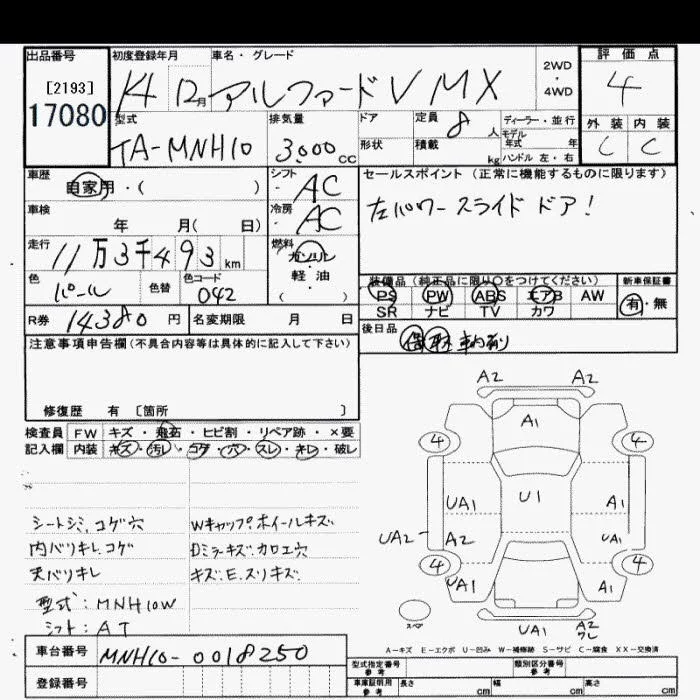 出品番号 初度登録年月 車名・グレード 評価点
[2193] H14 12月 アルファードV MX 2WD・4WD 4
17080 型式 排気量 ドア 定員 ディーラー・並行 外装 内装
TA-MNH10 3,000cc 形状 8人 モデル年式 年 C C
積載 kg ハンドル 左・右
車歴 シフト セールスポイント (正常に機能するものに限ります)
自家用・( ) AC 左パワースライドドア!
車検 冷房
年 月( 日) AC
走行 燃料
11万3千493km ガソリン
色 色替 色コード 軽・油
パール 042 ( )
装備品 (純正品に限り○をつけてください) 新車保証書
PS PW ABS エアB AW 有・無
SR ナビ TV カワ
R券 14380円 名変期限 月 日 後日品
保 取 車内有り
注意事項申告欄 (不具合内容等は具体的に記入して下さい)
修復歴 有 [箇所 ]
検査員 FW キズ・飛石・ヒビ割・リペア跡・×要
記入欄 内装 キズ・汚レ・コゲ・穴・スレ・キレ・破レ
シートシミ、コゲ穴 Wキャップ、ホイールキズ
内バリキレ、コゲ Dミラーキズ、カロエ穴
天バリキレ キズ、E、スリキズ
型式:MNH10W
シフト:AT
A2 A2
A1
4 4
UA1 U1 A1
UA2 A2 UA1
4 4
UA1 A1
スペア UA1 A2 ワレ
A-キズ E-エクボ U-凹み W-補修跡 S-サビ C-腐食 XX-交換済
車台番号 MNH10-0018250 型式指定番号 参考 類別区分番号 参考
登録番号 車庫証明用 参考 長さ cm 幅 cm 高さ cm